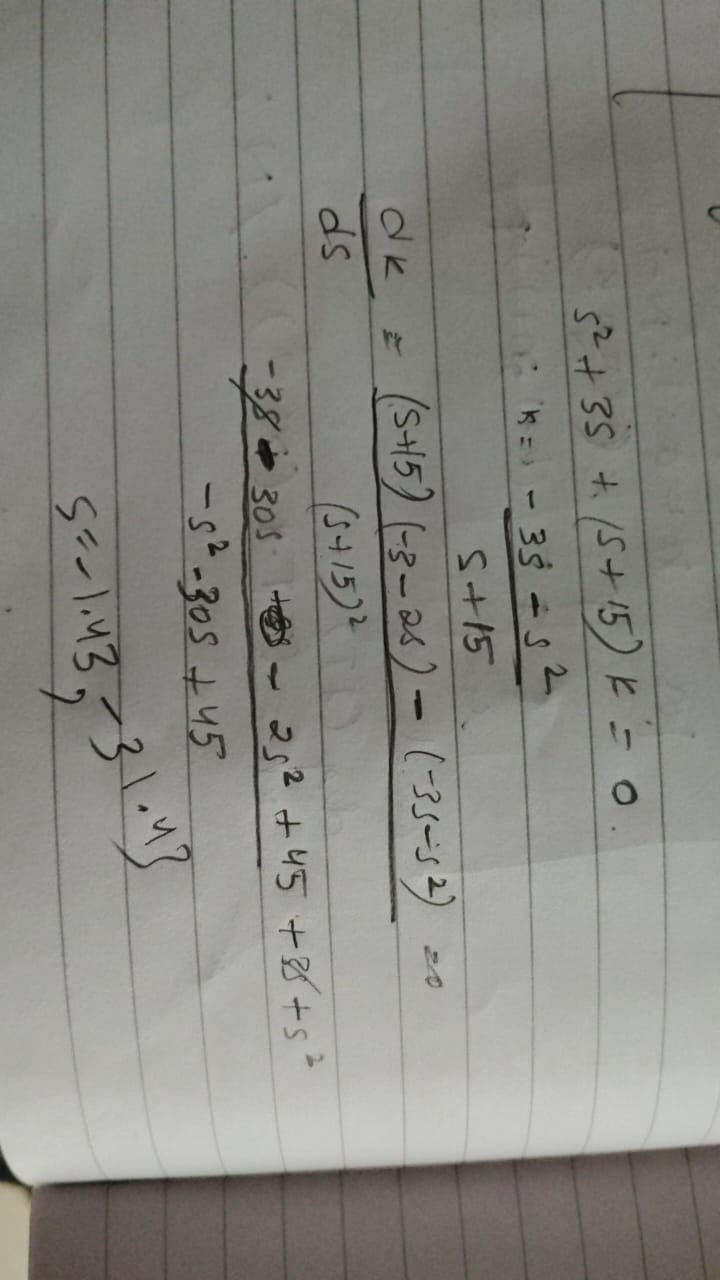 s² + 3s + (s+15) k = 0.
k = -3s - s²
s+15
dk = (s+15) (-3-2s) - (-3s-s²) =0
ds (s+15)²
-3s - 30s - 2s² + 45 + 3s + s²
-s² - 30s + 45
s = -1.43, -31.43